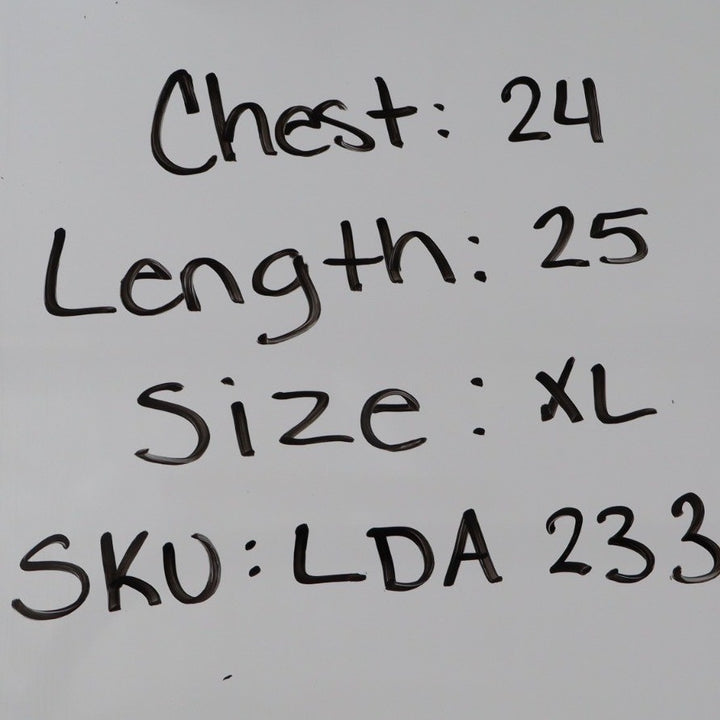 Chest: 24
Length: 25
Size: XL
SKU: LDA 233